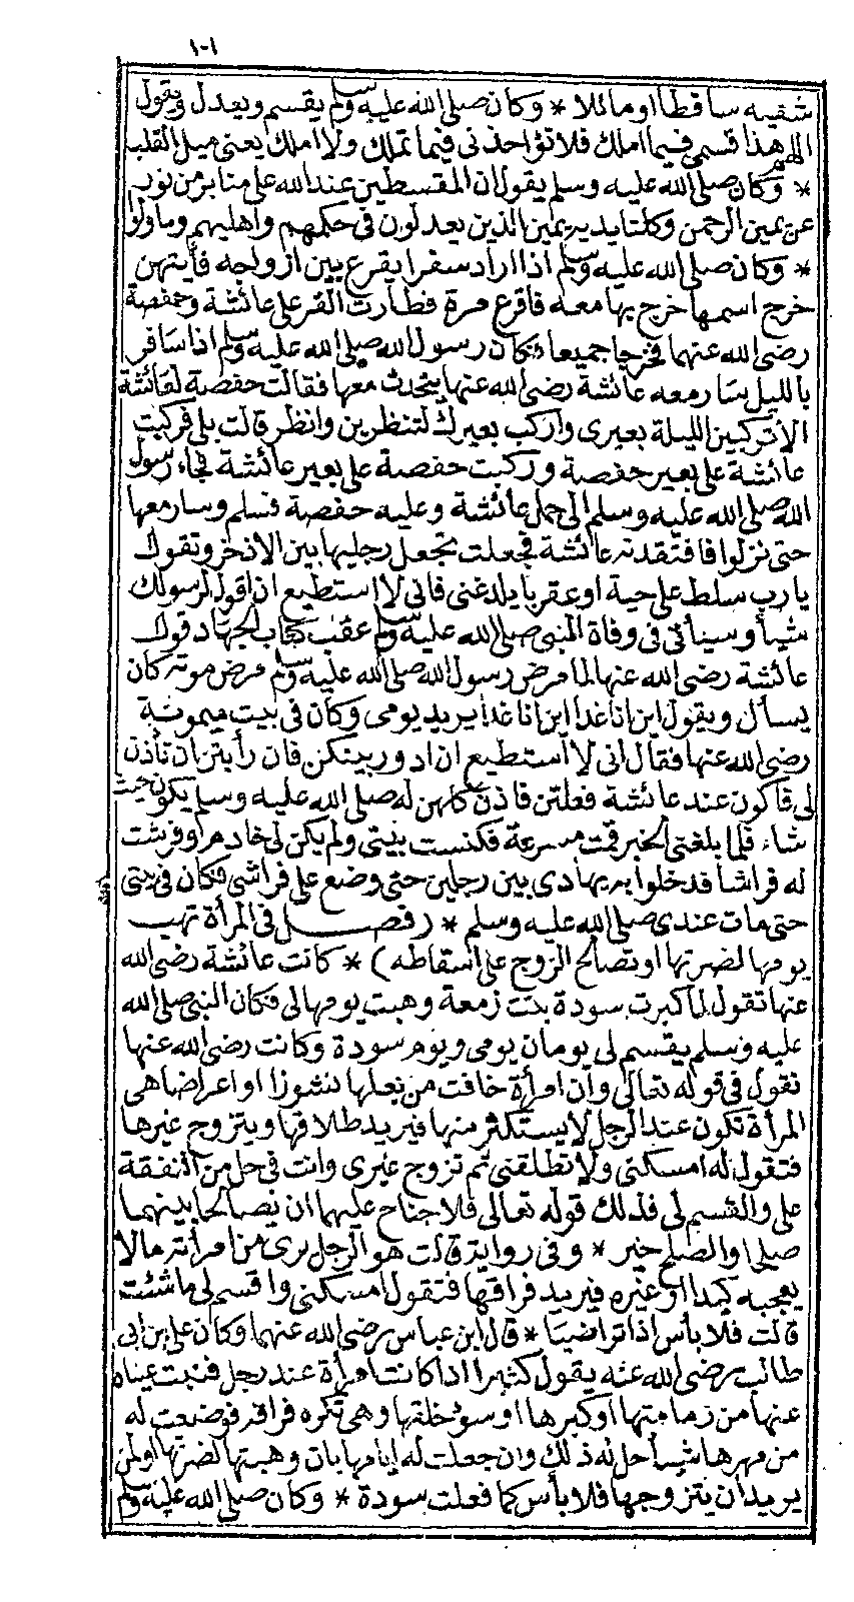 ١٠١
شقيه ساقطا او مائلا * وكان صلى الله عليه وسلم يقسم ويعدل ويقول
اللهم هذا قسمى فيما املك فلا تؤاخذنى فيما تملك ولا املك يعنى ميل القلب
* وكان صلى الله عليه وسلم يقول ان المقسطين عند الله على منابر من نور
عن يمين الرحمن وكلتا يديه يمين الذين يعدلون فى حكمهم واهليهم وما ولوا
* وكان صلى الله عليه وسلم اذا اراد سفرا يقرع بين ازواجه فأيتهن
خرج اسمها خرج بها معه فاقرع مرة فطارت القرعلى عائشة وحفصة
رضى الله عنهما فخرجا جميعا فكان رسول الله صلى الله عليه وسلم اذا سافر
بالليل سار معه عائشة رضى الله عنها يتحدث معها فقالت حفصة لعائشة
الا تركبين الليلة بعيرى واركب بعيرك لتنظرين وانظر قالت بلى فركبت
عائشة على بعير حفصة وركبت حفصة على بعير عائشة فجاء رسول
الله صلى الله عليه وسلم الى جمل عائشة وعليه حفصة فسلم وسار معها
حتى نزلوا فافتقدته عائشة فجعلت تجعل رجليها بين الاذخر وتقول
يا رب سلط على حية او عقربا يلدغنى فانى لا استطيع ان اقول لرسولك
شيأ وسيأتى فى وفاة النبى صلى الله عليه وسلم عقب كتاب الجهاد قول
عائشة رضى الله عنها لما مرض رسول الله صلى الله عليه وسلم مرض موته كان
يسأل ويقول اين انا غدا اين انا غدا يريد يومى وكان فى بيت ميمونة
رضى الله عنها فقال انى لا استطيع ان ادور بينكن فان رأيتن ان تأذن
لى فاكون عند عائشة فعلتن فاذن كلهن له صلى الله عليه وسلم يكون حيث
شاء فلما بلغنى الخبر قمت مسرعة فكنست بيتى ولم يكن لى خادم وفرشت
له فراشا فدخلوا به يهادى بين رجلين حتى وضع على فراشى فكان فى بيتى
حتى مات عندى صلى الله عليه وسلم * (فصل فى المرأة تهب
يومها لضرتها او تصالح الزوج على اسقاطه) * كانت عائشة رضى الله
عنها تقول لما كبرت سودة بنت زمعة وهبت يومها لى فكان النبى صلى الله
عليه وسلم يقسم لى يومان يومى ويوم سودة وكانت رضى الله عنها
تقول فى قوله تعالى وان امرأة خافت من بعلها نشوزا او اعراضا هى
المرأة تكون عند الرجل لا يستكثر منها فيريد طلاقها ويتزوج غيرها
فتقول له امسكنى ولا تطلقنى ثم تزوج غيرى وانت فى حل من النفقة
على والقسم لى فذلك قوله تعالى فلا جناح عليهما ان يصالحا بينهما
صلحا والصلح خير * وفى رواية قالت هو الرجل يرى من امرأته مالا
يعجبه كبرا او غيره فيريد فراقها فتقول امسكنى واقسم لى ما شئت
قالت فلا بأس اذا تراضيا * قال ابن عباس رضى الله عنهما وكان على بن ابى
طالب رضى الله عنه يقول كثيرا اذا كانت امرأة عند رجل فنبت عيناه
عنها من زمامتها او كبرها او سوء خلقها وهى تكره فراقه فوضعت له
من مهرها شيأ حل له ذلك وان جعلت له ايامها بان وهبتها لضرتها او لمن
يريد ان يتزوجها فلا بأس كما فعلت سودة * وكان صلى الله عليه وسلم